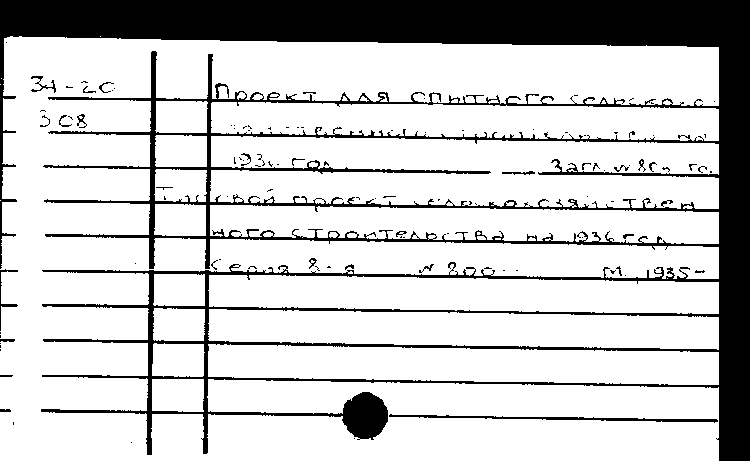 34-20
Проект для опытного сельско-
308
хозяйственного строительства на
1936 год. Загл. №
Типовой проект сельскохозяйствен
ного строительства на 1936 год.
Серия 8-я № 800 М., 1935-